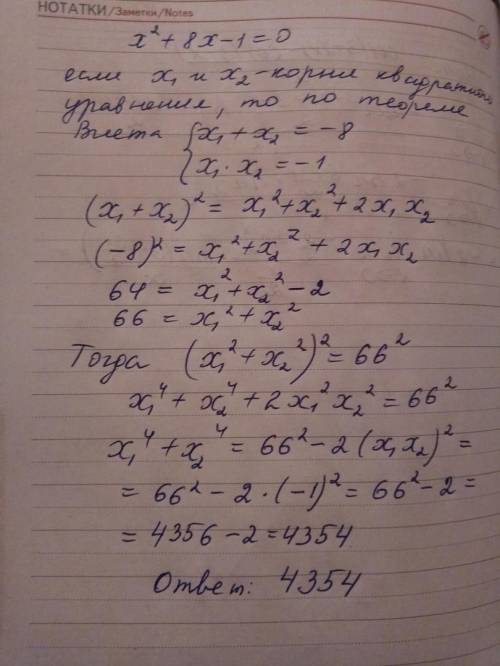 НОТАТКИ/Заметки/Notes
x² + 8x - 1 = 0
если x₁ и x₂ - корни квадратного
уравнения, то по теореме
Виета { x₁ + x₂ = -8
x₁ · x₂ = -1
(x₁ + x₂)² = x₁² + x₂² + 2x₁x₂
(-8)² = x₁² + x₂² + 2x₁x₂
64 = x₁² + x₂² - 2
66 = x₁² + x₂²
Тогда (x₁² + x₂²)² = 66²
x₁⁴ + x₂⁴ + 2x₁²x₂² = 66²
x₁⁴ + x₂⁴ = 66² - 2(x₁x₂)² =
= 66² - 2 · (-1)² = 66² - 2 =
= 4356 - 2 = 4354
Ответ: 4354